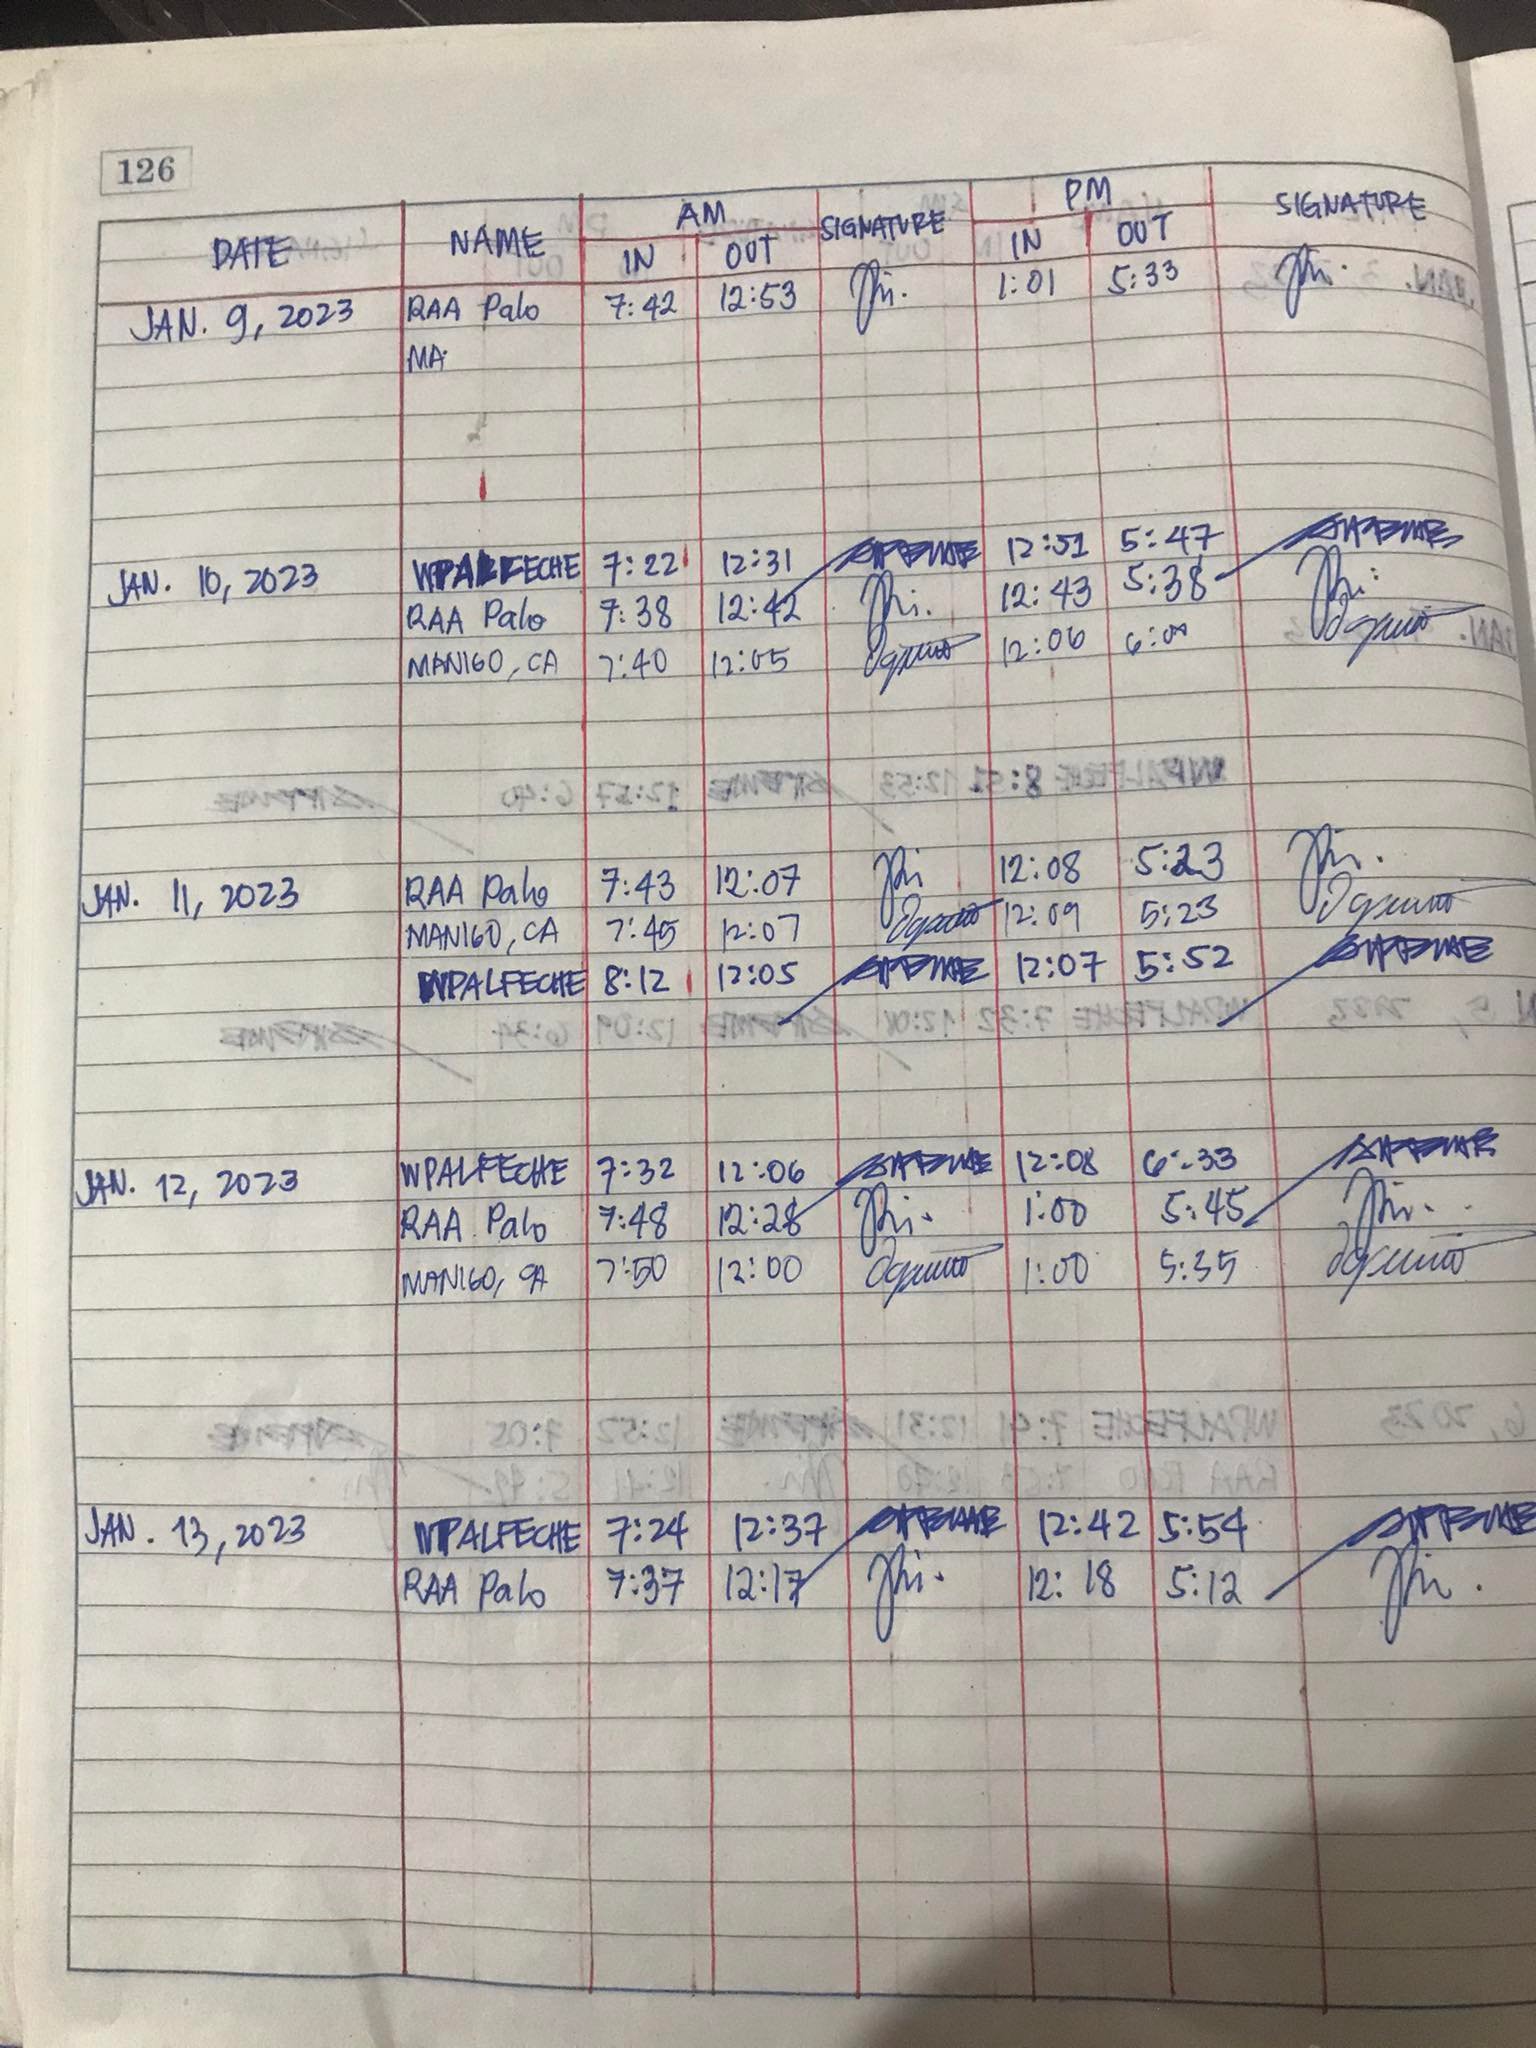 126
DATE NAME AM SIGNATURE PM SIGNATURE
IN OUT IN OUT
JAN. 9, 2023 RAA Palo 7:42 12:53 1:01 5:33
MA
JAN. 10, 2023 WPALFECHE 7:22 12:31 12:51 5:47
RAA Palo 7:38 12:42 12:43 5:38
MANIGO, CA 7:40 12:05 12:06
JAN. 11, 2023 RAA Palo 7:43 12:07 12:08 5:23
MANIGO, CA 7:45 12:07 12:09 5:23
WPALFECHE 8:12 12:05 12:07 5:52
JAN. 12, 2023 WPALFECHE 7:32 12:06 12:08 6:33
RAA Palo 7:48 12:28 1:00 5:45
MANIGO, CA 7:50 12:00 1:00 5:35
JAN. 13, 2023 WPALFECHE 7:24 12:37 12:42 5:54
RAA Palo 7:37 12:17 12:18 5:12